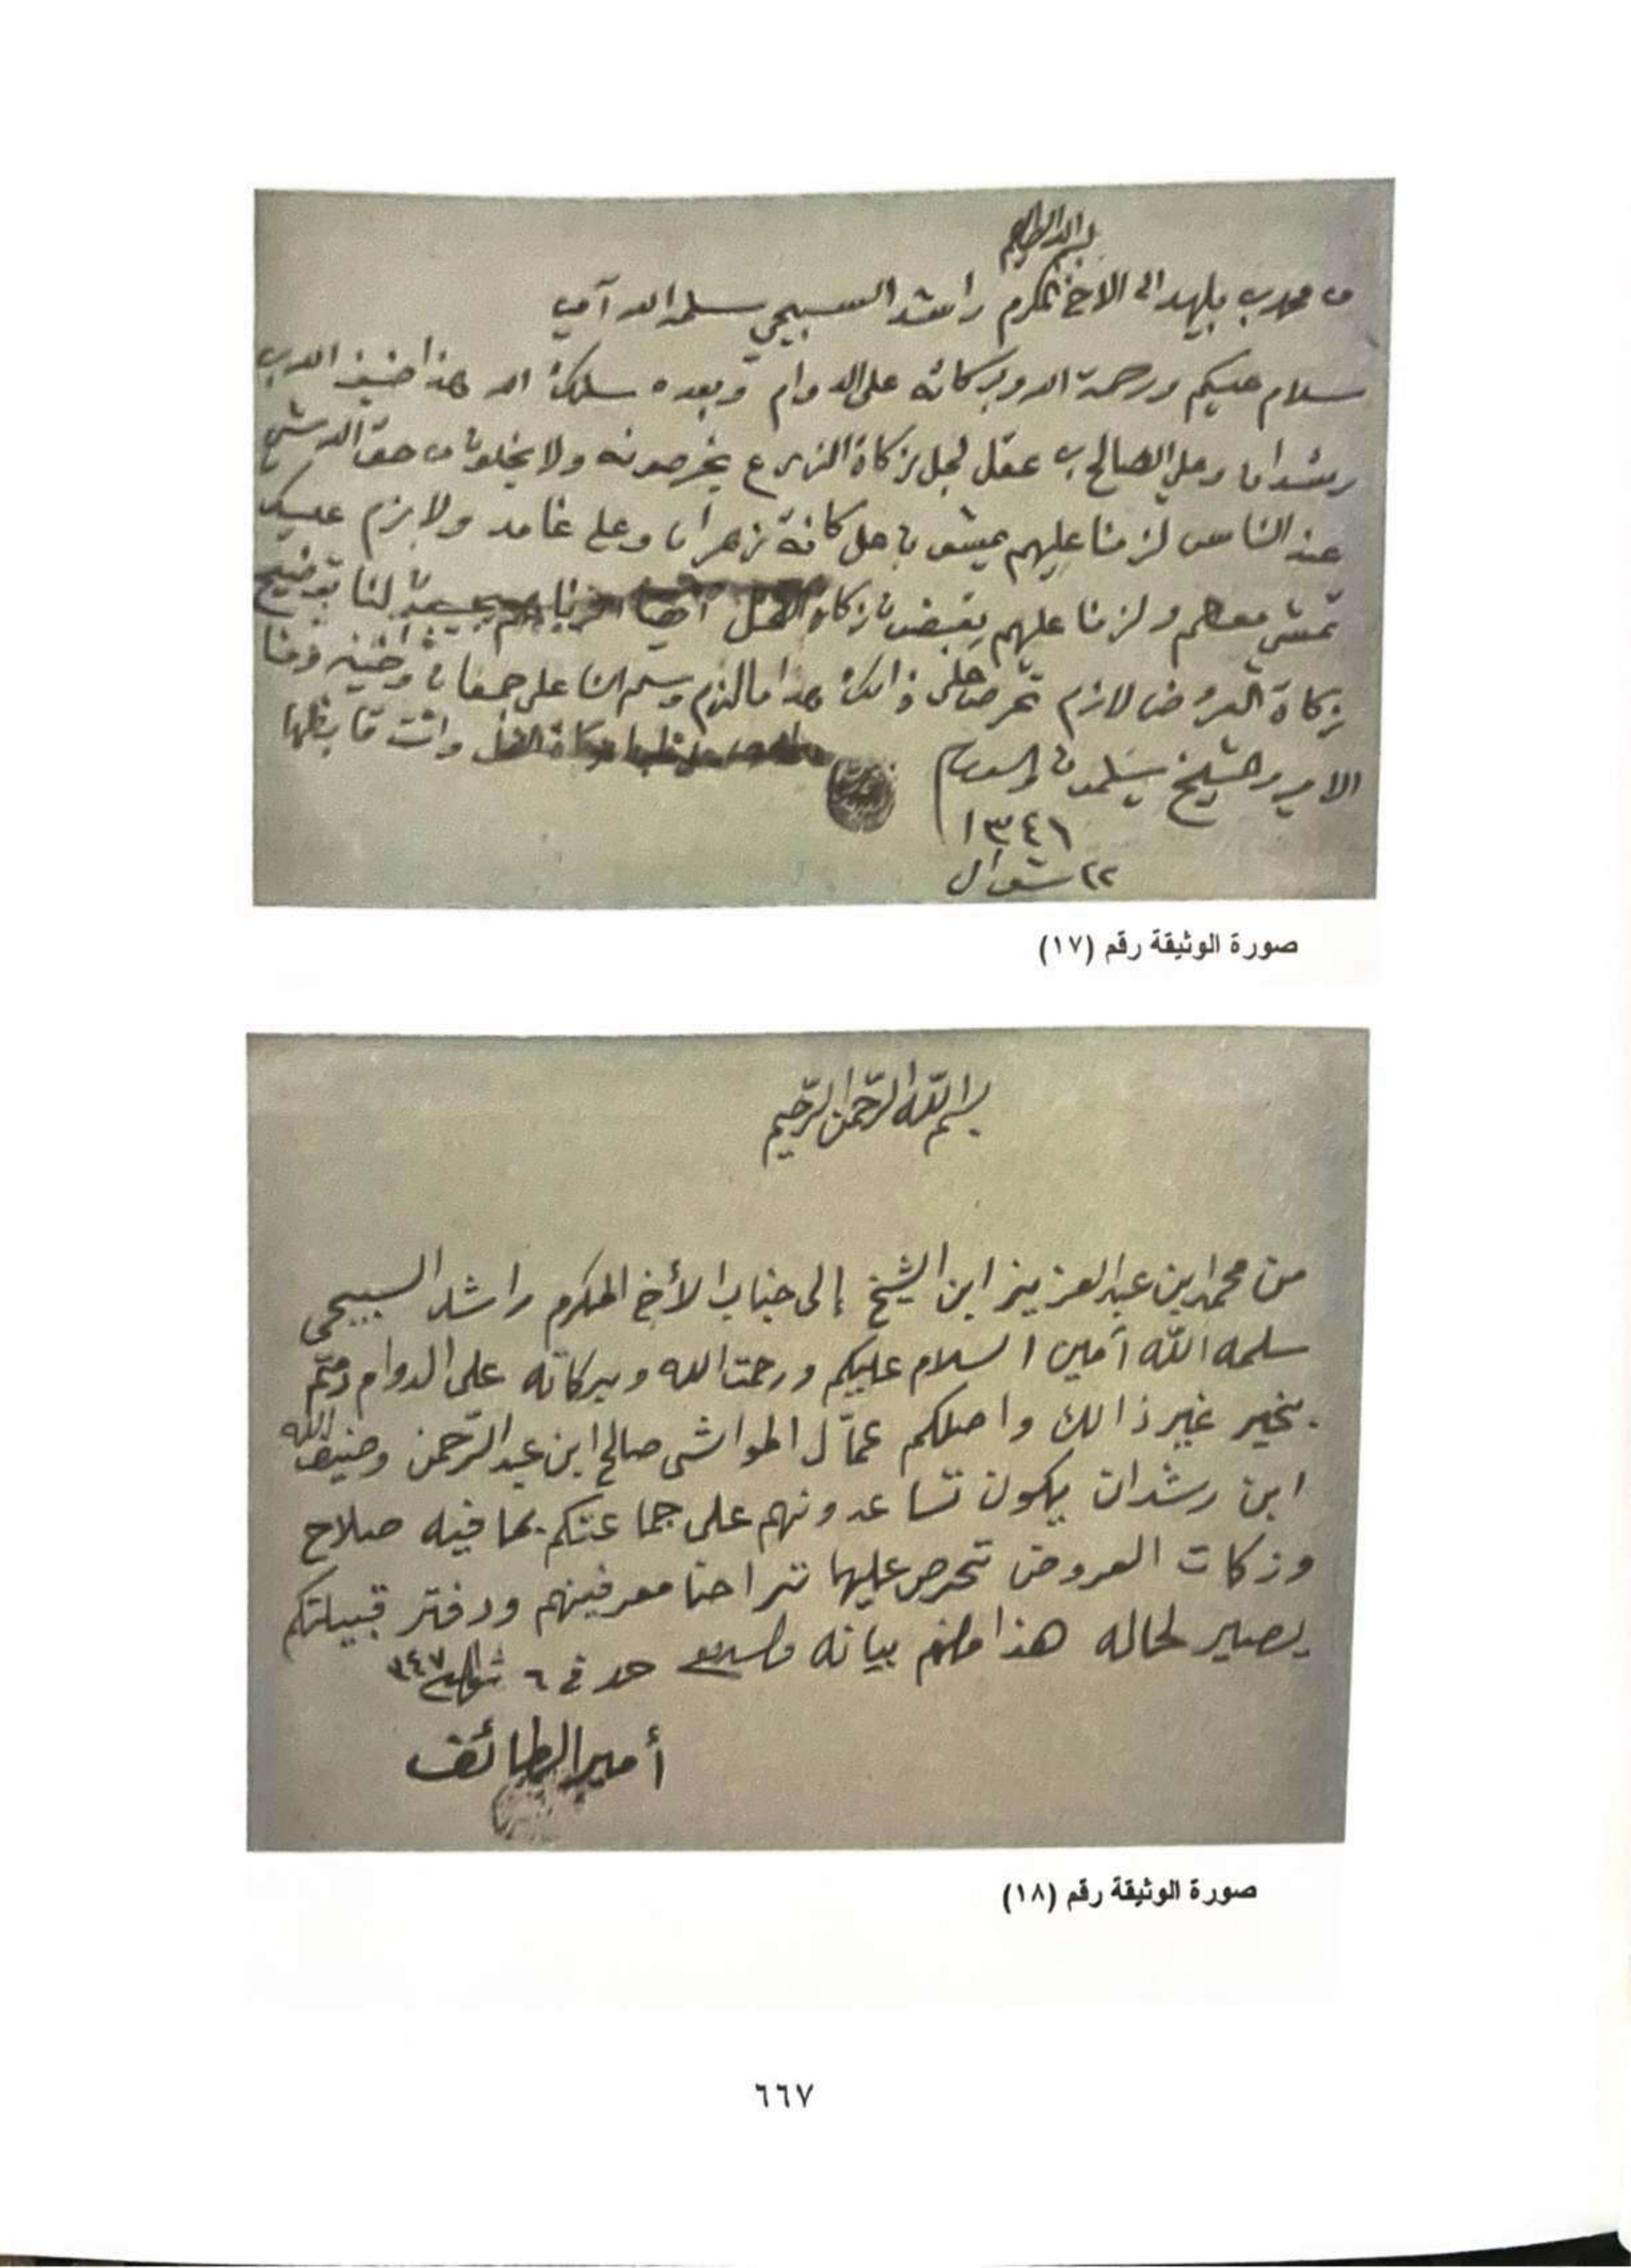 من محمد بن بليهد الى الاخ المكرم راشد السبيحي سلمه الله آمين
سلام عليكم ورحمة الله وبركاته على الدوام وبعده سلمك الله هذا ضيف الله بن
رشدان وعلي الصالح بن عقل لجل زكاة الزرع يخرصونه ولا يخلون من حق الله شي
عند الناس لزمنا عليهم يمشون على كافة زهران وعلى غامد ولا يزم عليك
تمشي معهم ولزمنا عليهم يقبضون زكاة لنا بتوضيح
زكاة العروض لازم تحرص على ذالك هذا مالزم وسلم لنا على ومنا
الامير والشيخ يسلمون والسلام وانت
١٣٤٦
٢٢ شوال
صورة الوثيقة رقم (١٧)
بسم الله الرحمن الرحيم
من محمد ابن عبد العزيز ابن الشيخ إلى جناب الأخ المكرم راشد السبيحي
سلمه الله آمين السلام عليكم ورحمت الله وبركاته على الدوام دمتم
بخير غير ذالك واصلكم عمّال المواشي صالح ابن عبد الرّحمن وضيف الله
ابن رشدان يكون تساعدونهم على جماعتكم بما فيه صلاح
وزكات العروض تحرص عليها ترا حنا معرفينهم ودفتر قبيلتكم
يصير لحاله هذا مالزم بيانه والسلام حرر في ٦ شوال ٣٤٧
أمير الطائف
صورة الوثيقة رقم (١٨)
٦٦٧